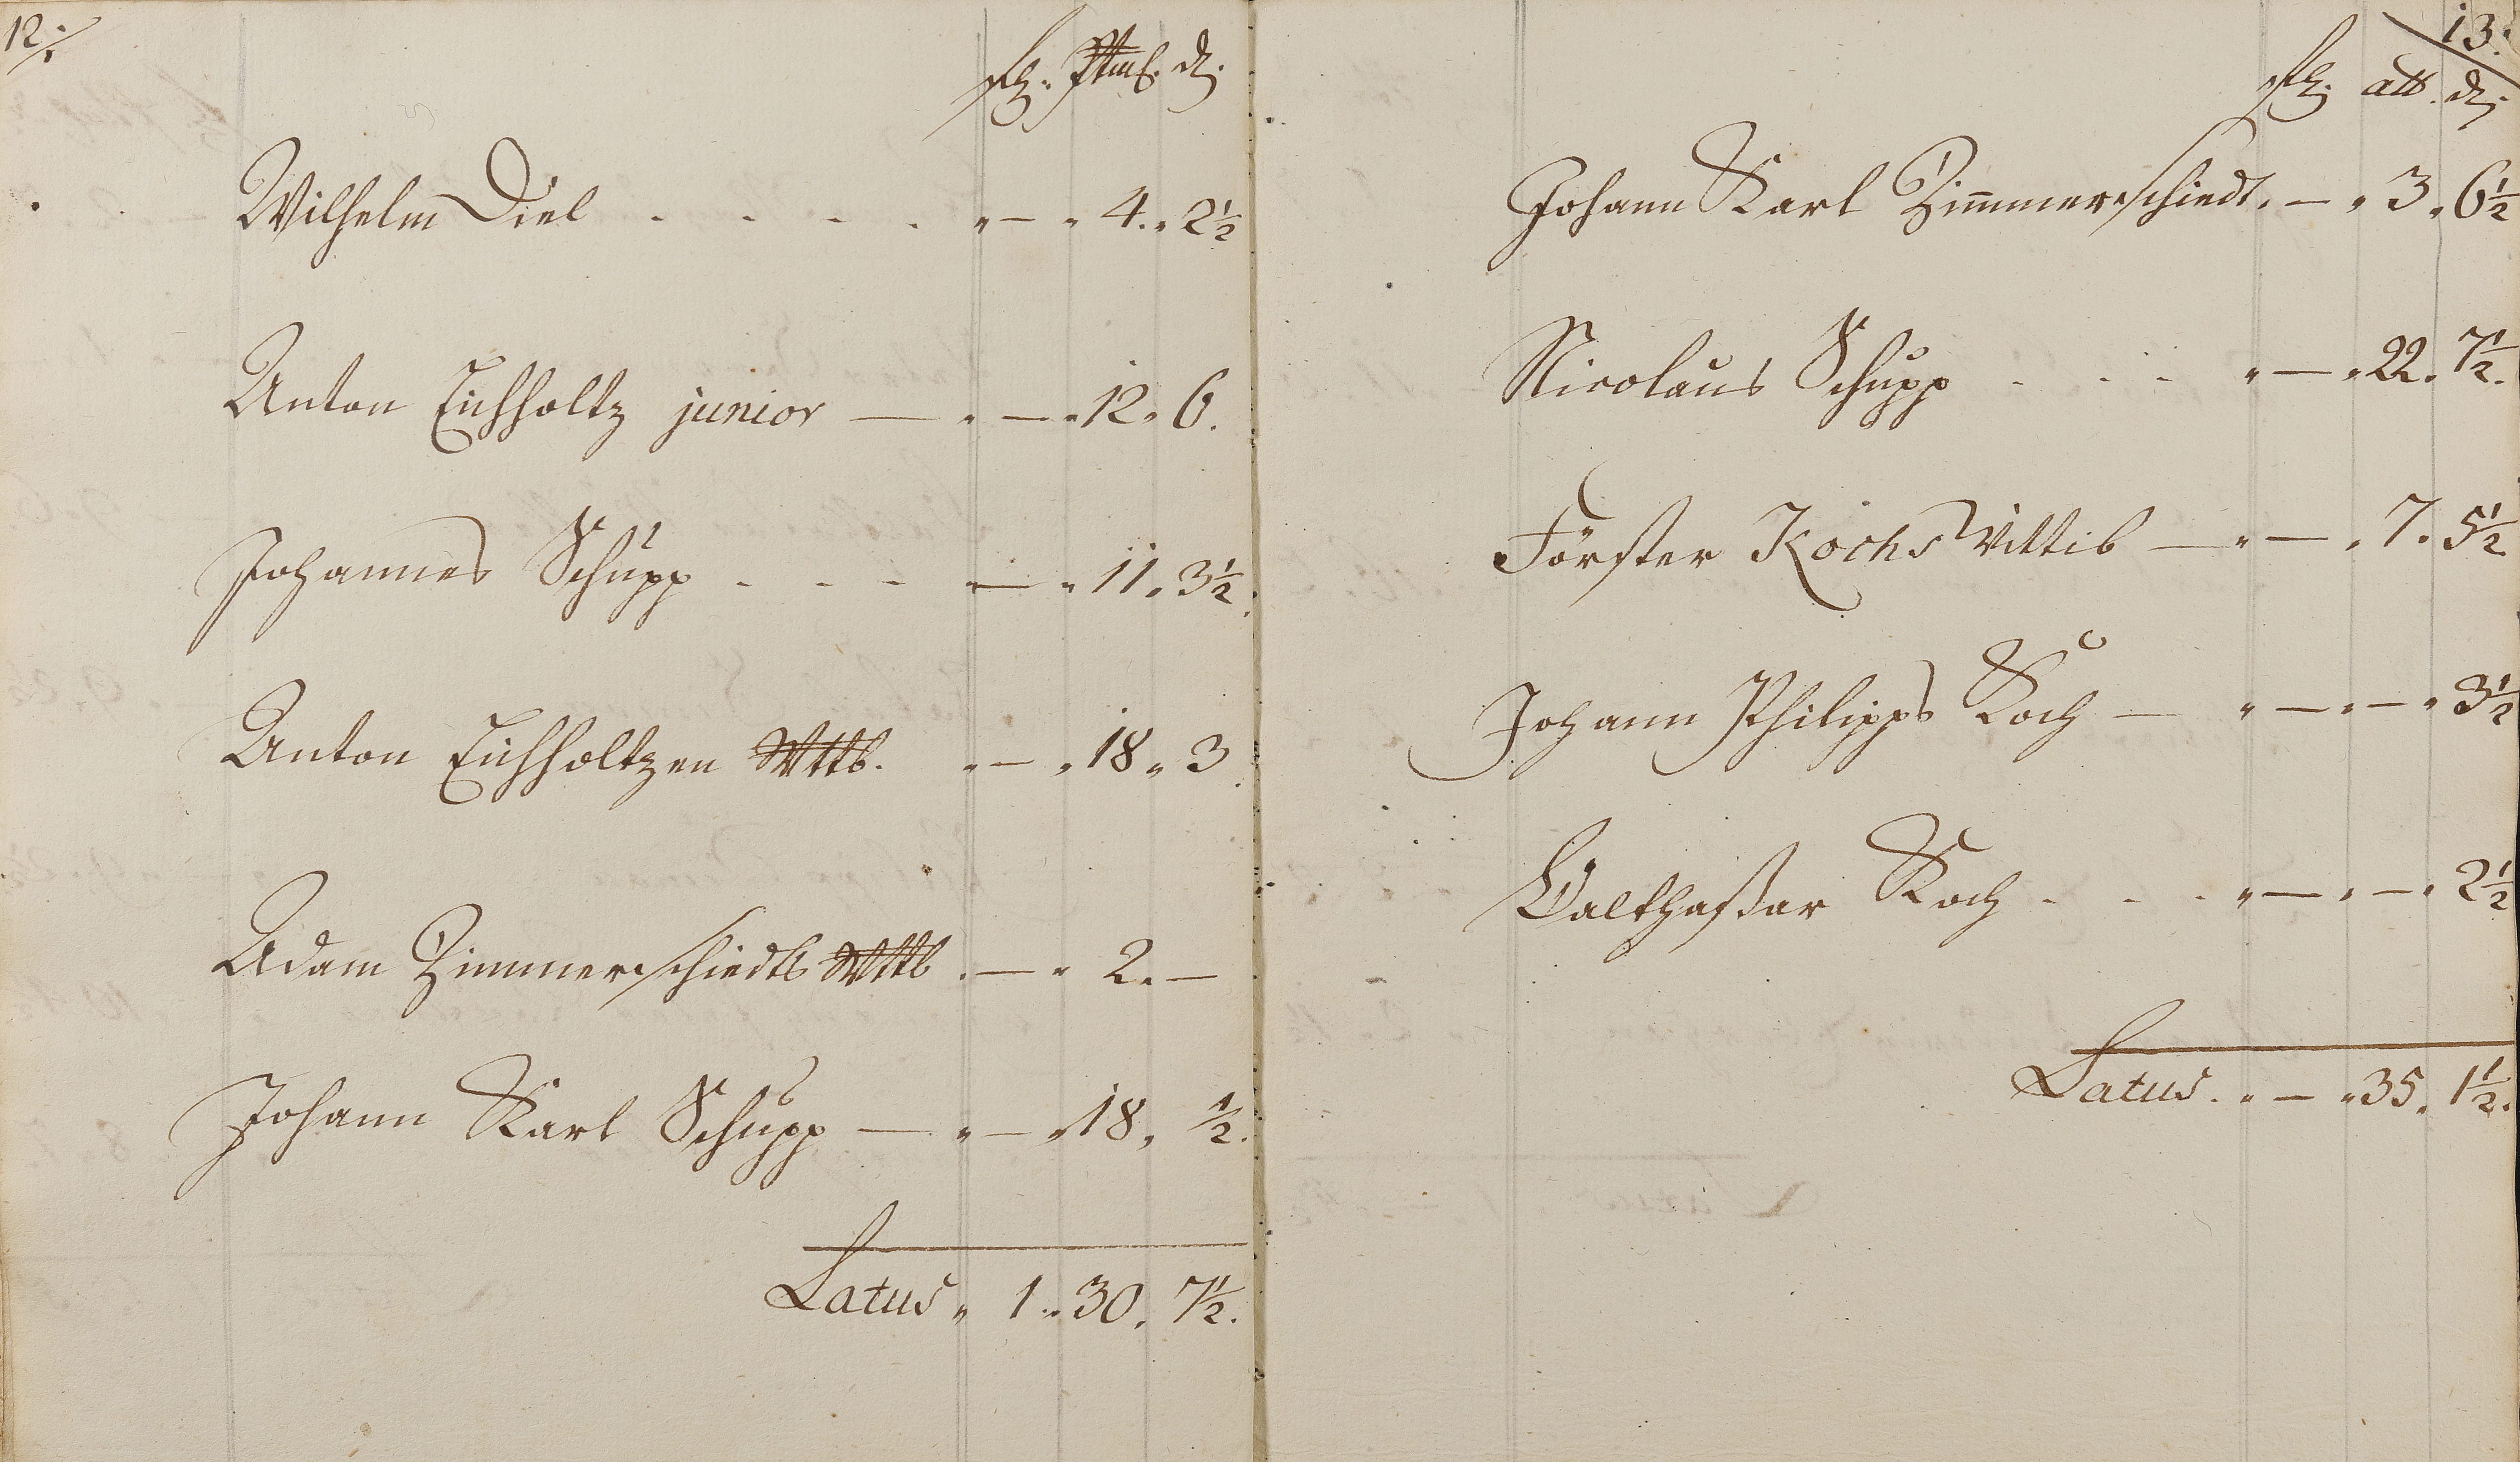 12.
Wilhelm Diel - - - - " — " 4. " 2½
Anton Eichholtz junior — " — " 12 " 6.
Johannes Schupp - - - — " 11 " 3½.
Anton Eichholtzen Wttb. " — " 18 " 3.
Adam Zimmerschiedts Wttb . — " 2. —
Johann Karl Schupp — " — " 18, ½.
Latus " 1 " 30. 7½.
13.
alb. d.
Johann Karl Zimmerschiedt. — " 3 " 6½
Nicolaus Schupp - - - " — " 22. 7½.
Förster Kochs Wittib — " — . 7. 5½
Johann Philipps Koch — " — " — " 3½
Balthasar Koch - - - " — " — " 2½
Latus. " — " 35. 1½.